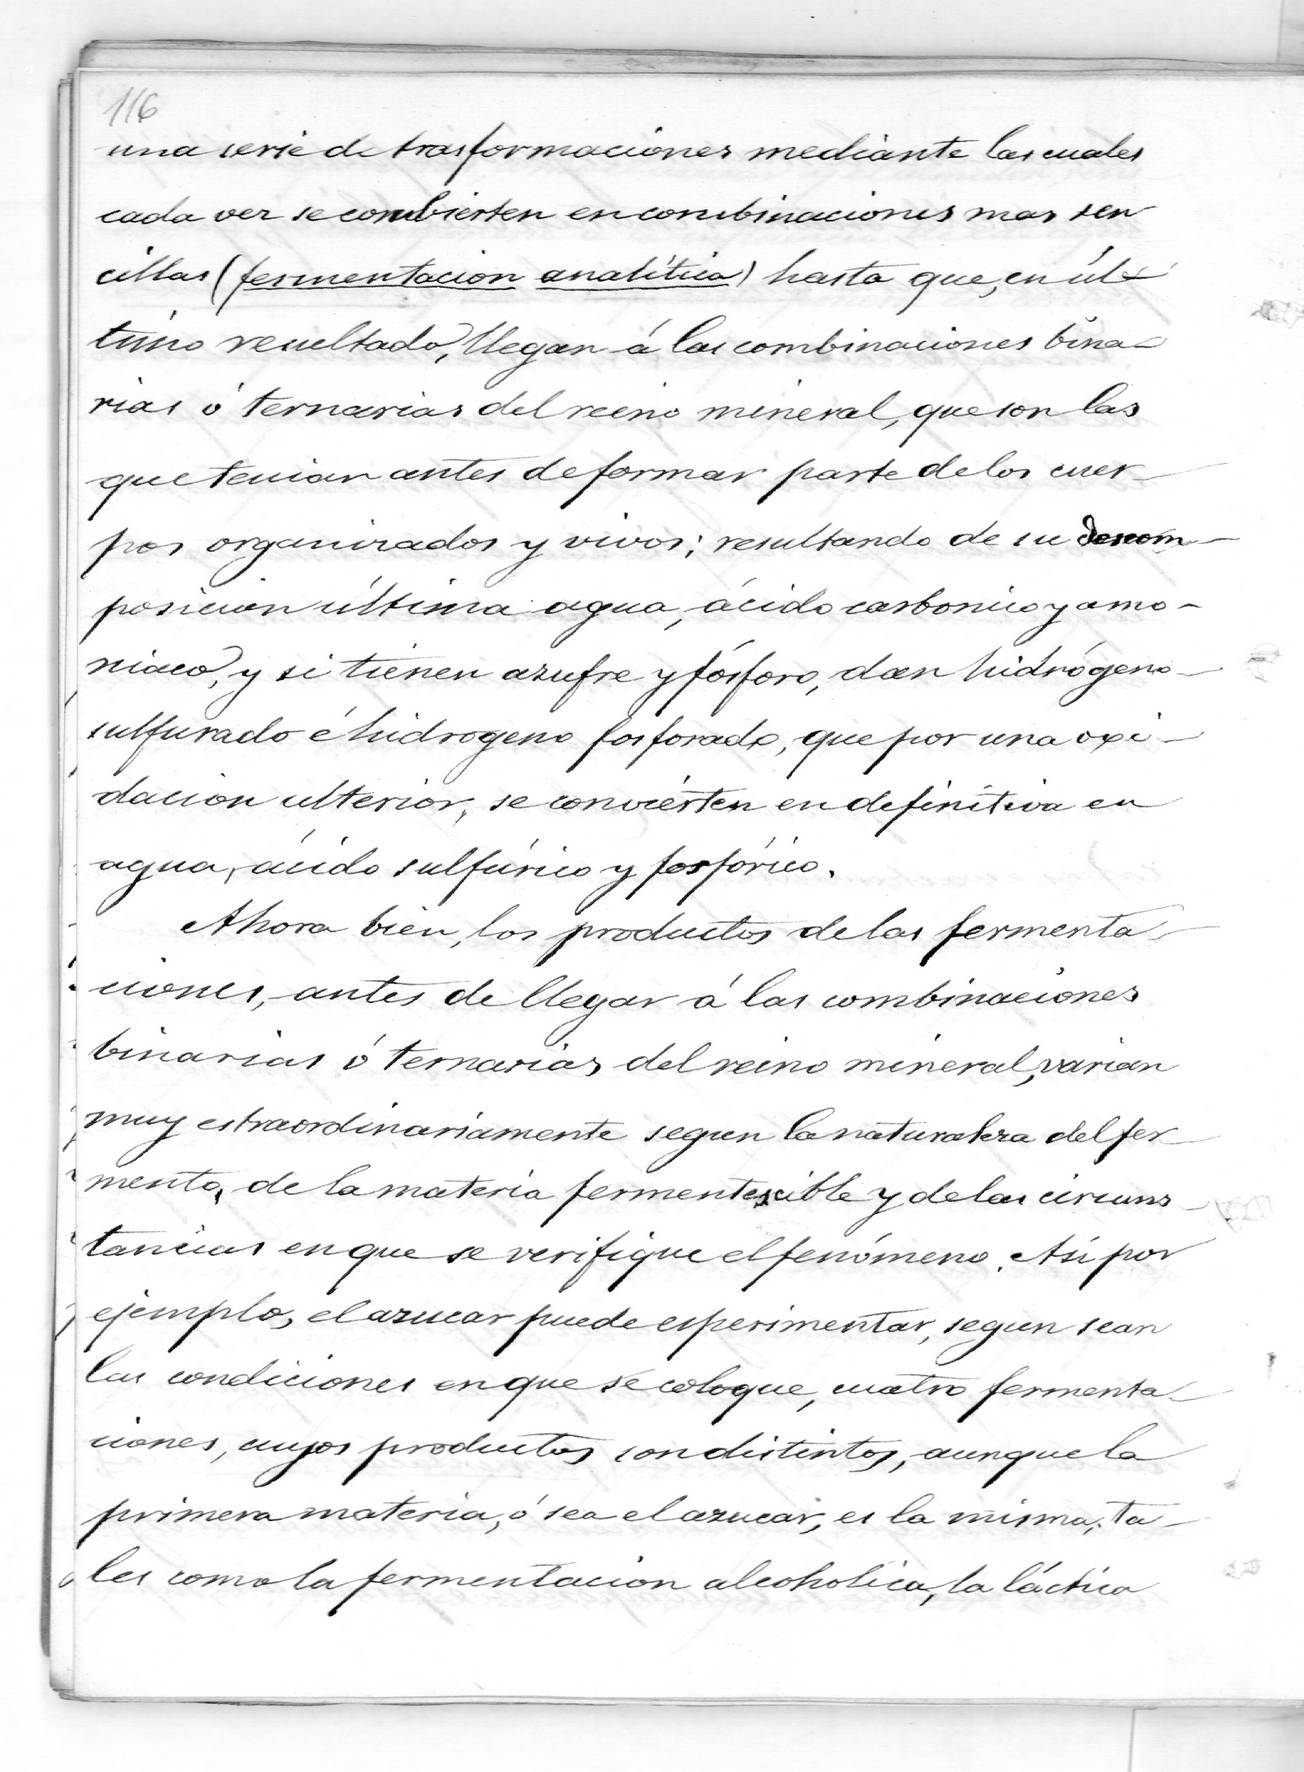 116
una serie de trasformaciones mediante las cuales
cada vez se combierten en combinaciones mas sen
cillas (fermentacion analítica) hasta que, en úl-
timo resultado, llegan á las combinaciones bina-
rias ó ternarias del reino mineral, que son las
que tenian antes de formar parte de los cuer-
pos organizados y vivos; resultando de su descom-
posicion última agua, ácido carbonico y amo-
niaco, y si tienen azufre y fósforo, dan hidrógeno-
sulfurado é hidrogeno fosforado, que por una oxi-
dacion ulterior, se convierten en definitiva en
agua, ácido sulfúrico y fosfórico.
Ahora bien, los productos de las fermenta-
ciones, antes de llegar á las combinaciones
binarias ó ternarias del reino mineral, varian
muy estraordinariamente segun la naturaleza del fer-
mento, de la materia fermentescible y de las circuns-
tancias en que se verifique el fenómeno. Asi por
ejemplo, el azucar puede esperimentar, segun sean
las condiciones en que se coloque, cuatro fermenta-
ciones, cuyos productos son distintos, aunque la
primera materia, ó sea el azucar, es la misma, ta-
les como la fermentacion alcoholica, la láctica